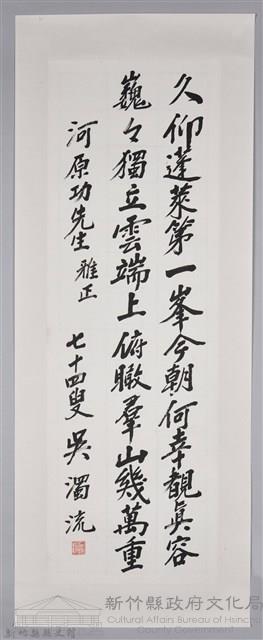 久仰蓬萊第一峯今朝何幸覩真容
巍々獨立雲端上俯瞰羣山幾萬重
河原功先生 雅正
七十四叟 吳濁流
新竹縣政府文化局
Cultural Affairs Bureau of Hsinchu
County Government